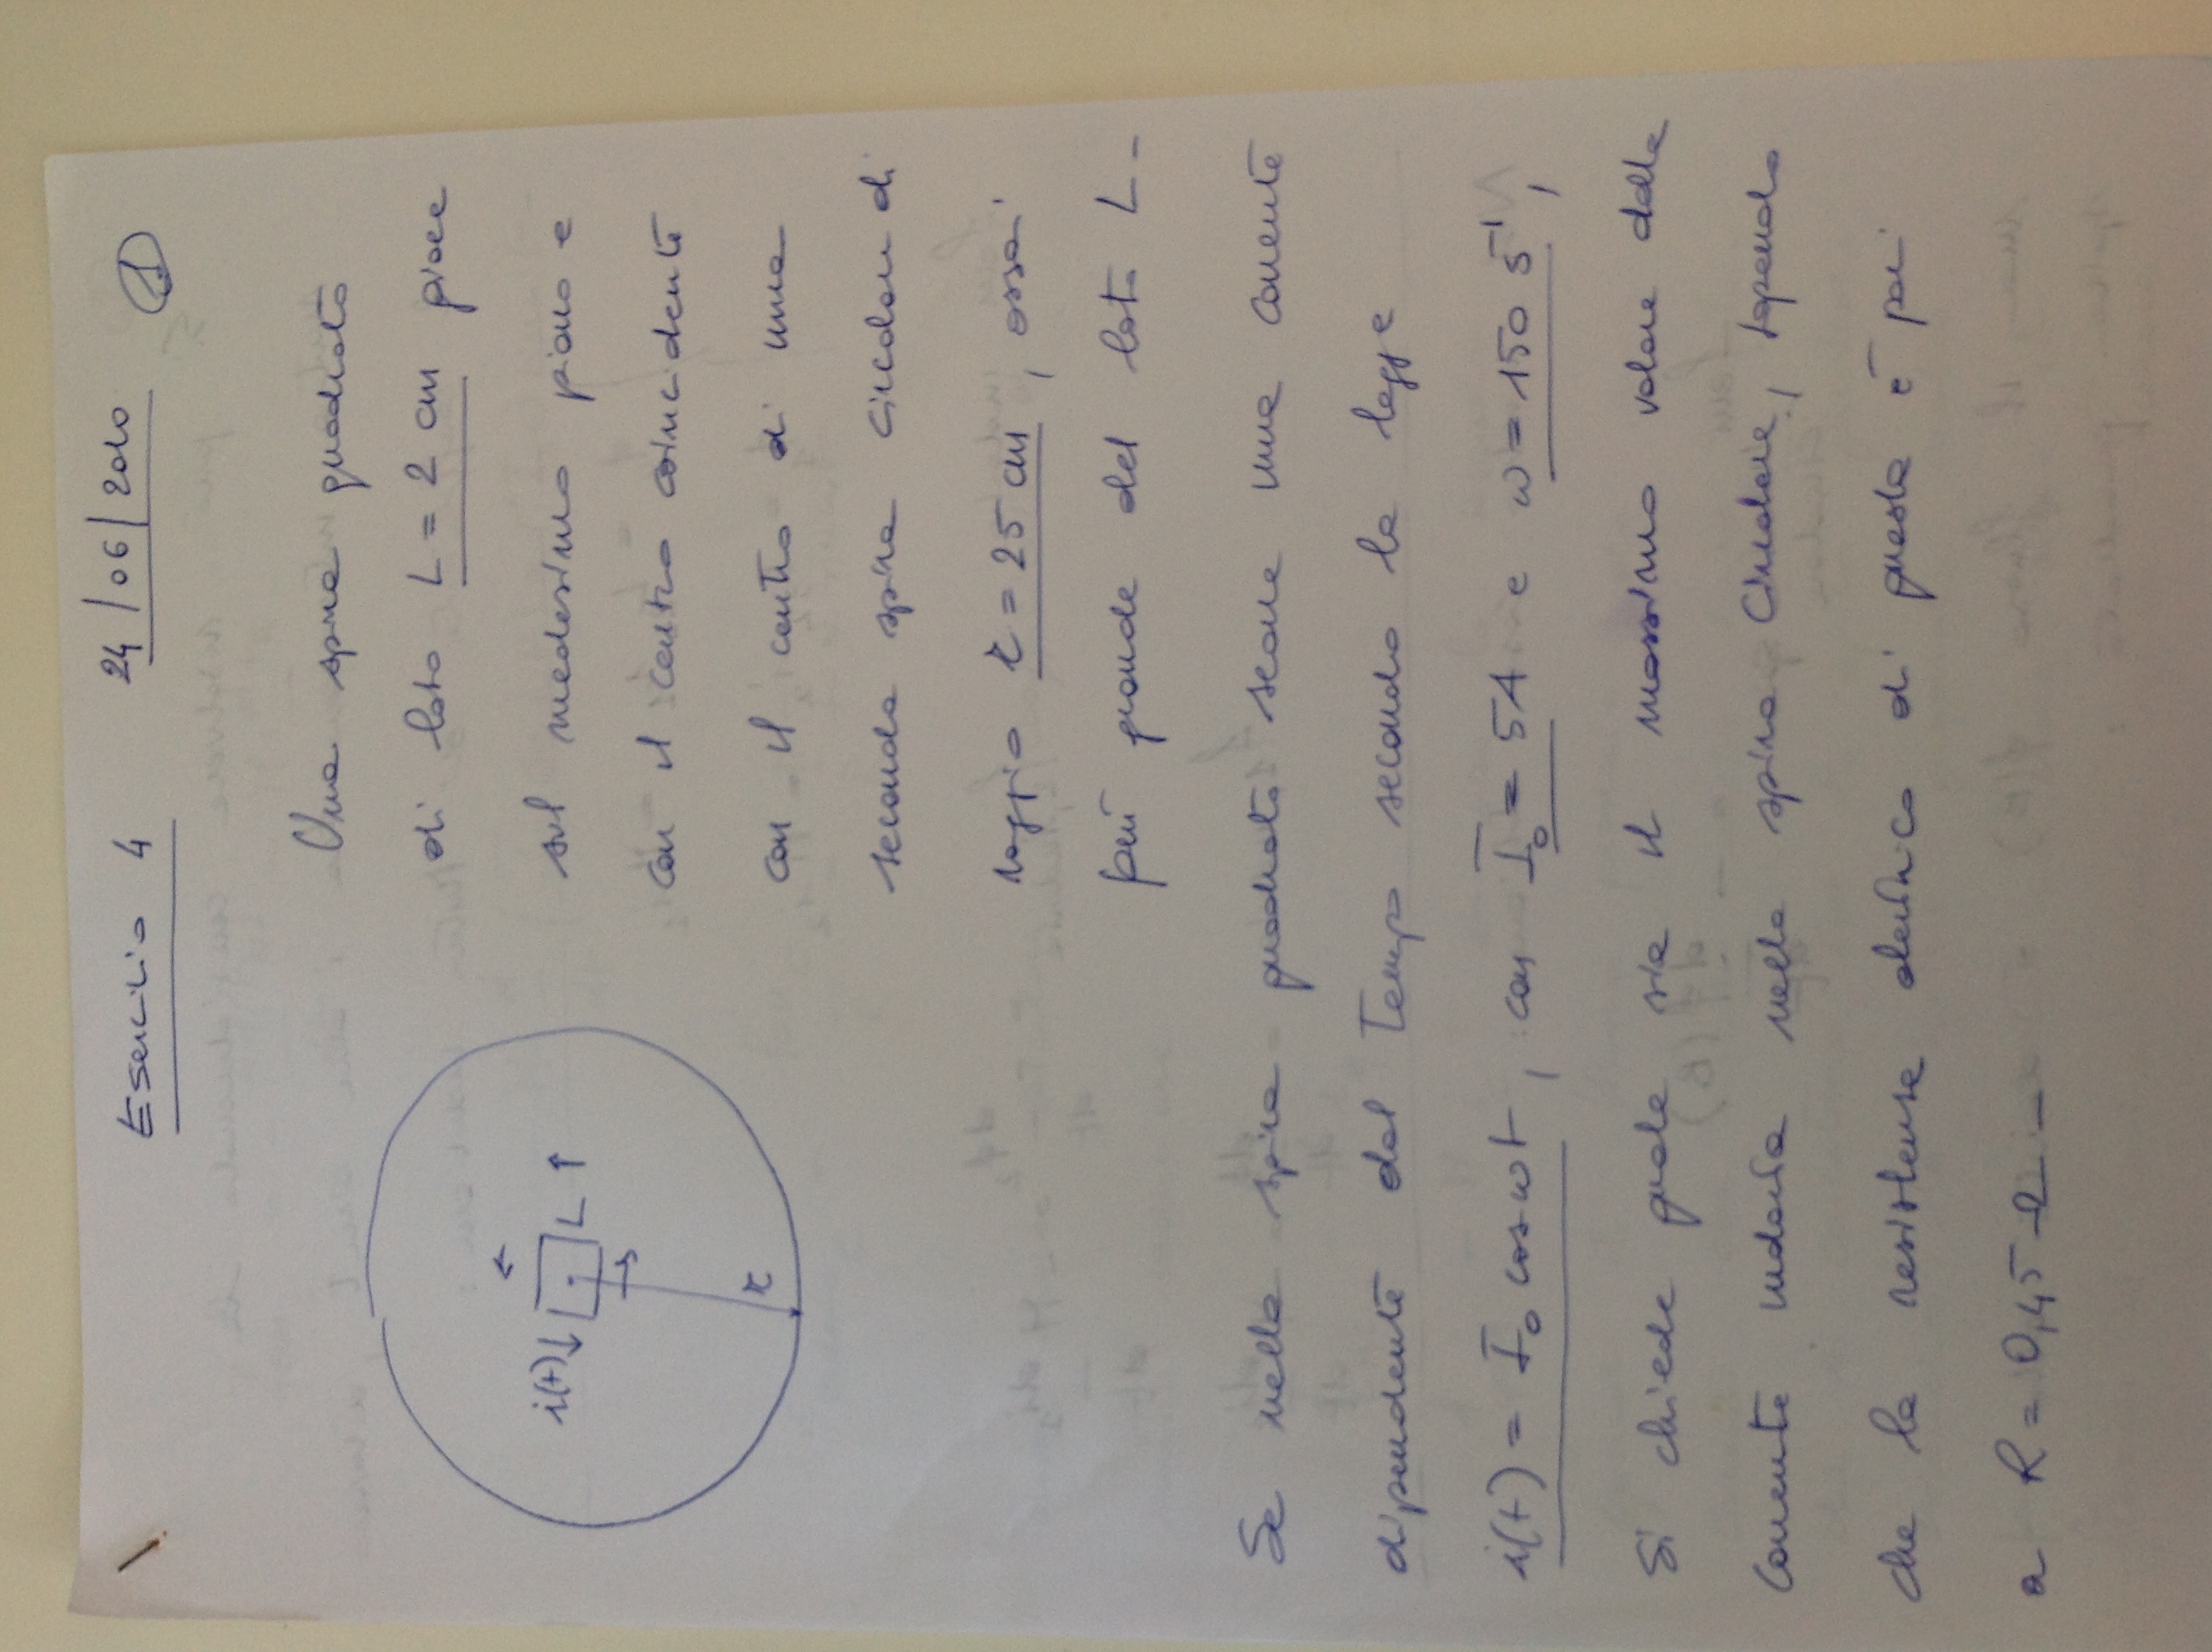 Esercizio 4
24/06/2010
1
Una spira quadrata
di lato L = 2 cm giace
sul medesimo piano e
con il centro coincidente
con il centro di una
seconda spira circolare di
raggio r = 25 cm, assai
più grande del lato L -
i(t) L
r
Se nella spira quadrata scorre una corrente
dipendente dal tempo secondo la legge
i(t) = I₀ cos ωt, con I₀ = 5A e ω = 150 s⁻¹,
Si chiede quale sia il massimo valore della
corrente indotta nella spira circolare, sapendo
che la resistenza elettrica di questa è pari
a R = 0,45 Ω -